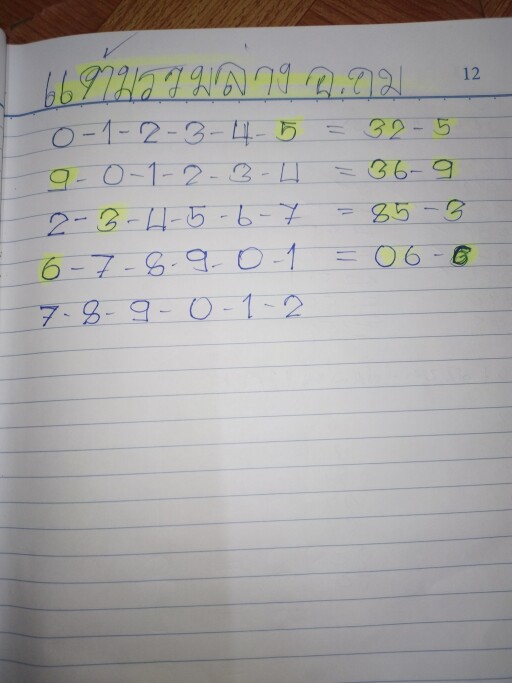 แต้มรวมล่าง อ.ถม 12
0-1-2-3-4-5 = 32-5
9-0-1-2-3-4 = 36-9
2-3-4-5-6-7 = 85-3
6-7-8-9-0-1 = 06-6
7-8-9-0-1-2